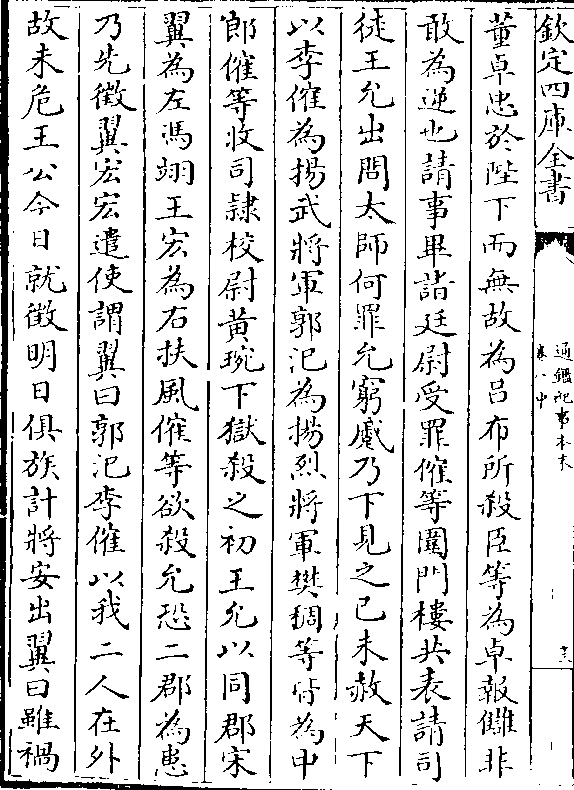 欽定四庫全書
通鑑紀事本末
卷八中
董卓忠於陛下而無故為呂布所殺臣等為卓報讎非
敢為逆也請事畢詣廷尉受罪傕等圍門樓共表請司
徒王允出問太師何罪允窮蹙乃下見之已未赦天下
以李傕為揚武將軍郭汜為揚烈將軍樊稠等皆為中
郎傕等收司隷校尉黄琬下獄殺之初王允以同郡宋
翼為左馮翊王宏為右扶風傕等欲殺允恐二郡為患
乃先徵翼宏宏遣使謂翼曰郭汜李傕以我二人在外
故未危王公今日就徵明日俱族計將安出翼曰雖禍